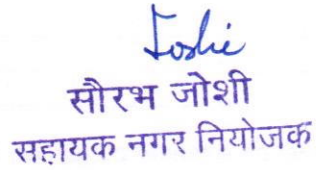 Joshi
सौरभ जोशी
सहायक नगर नियोजक